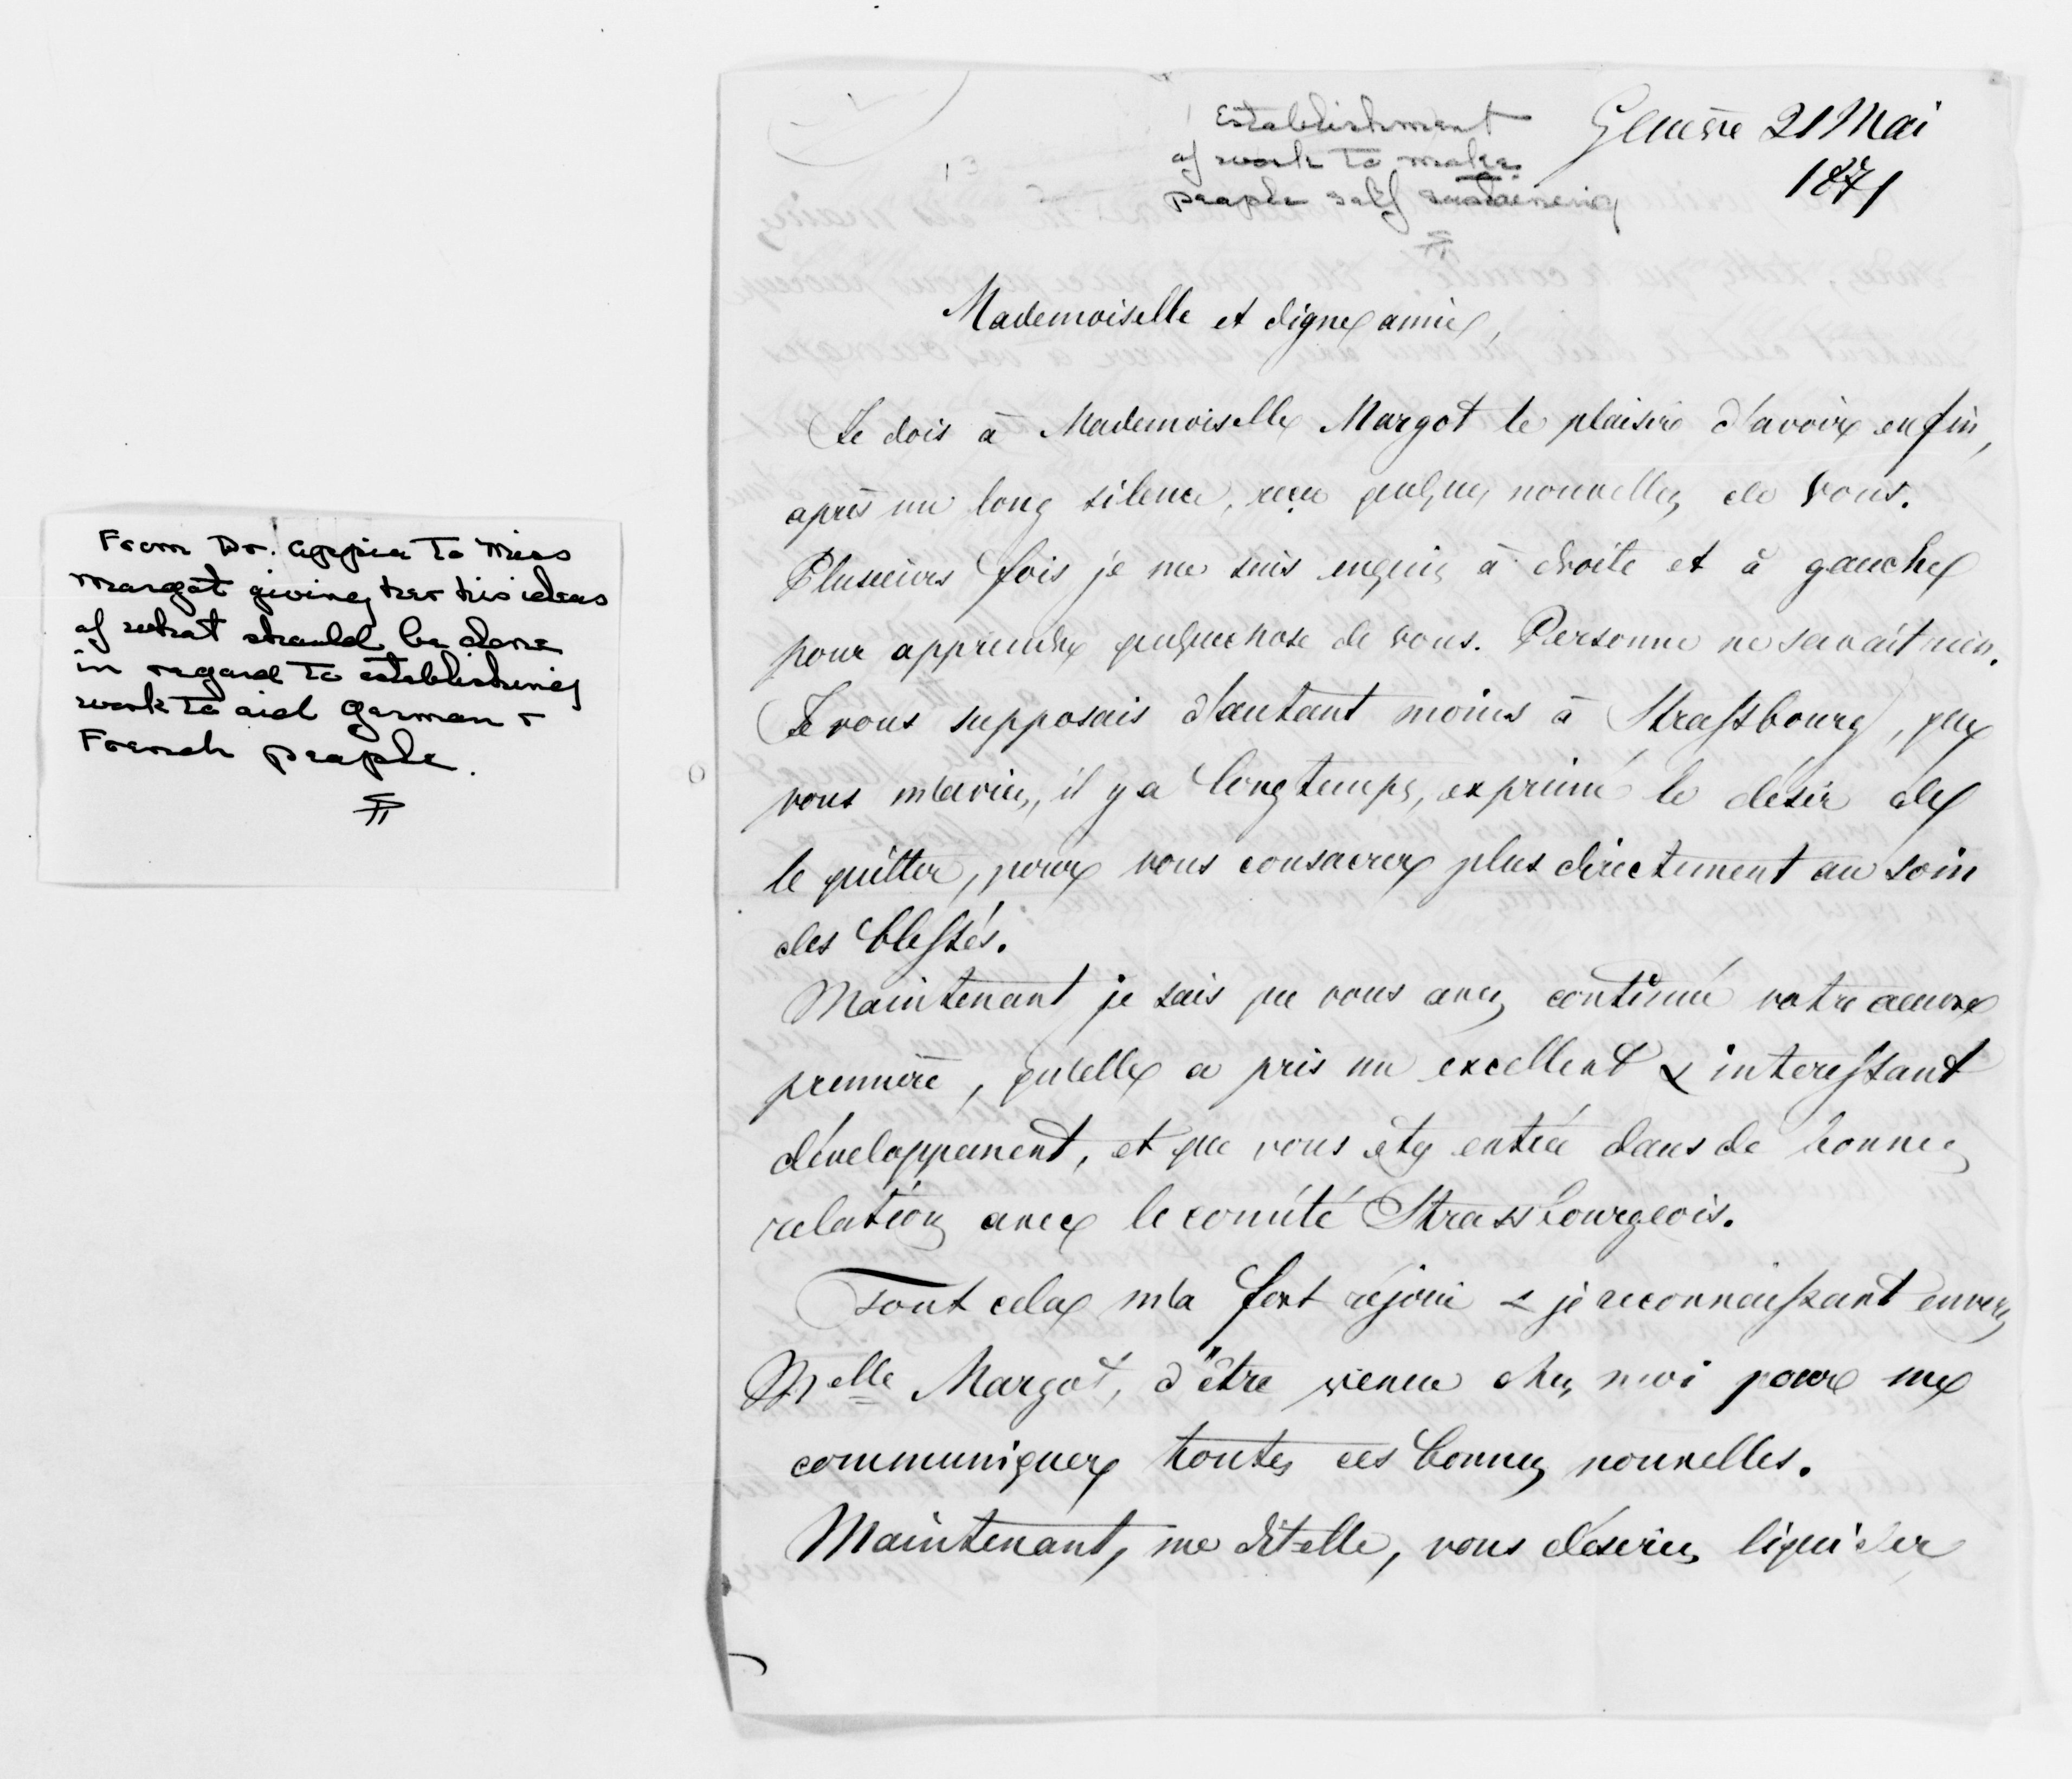 From Dr. Appia to Miss
Margot giving her his ideas
of what should be done
in regard to establishing
work to aid German &
French people.
Establishment
of work to make
people self sustaining
Genève 21 Mai
1871
Mademoiselle et digne amie,
Je dois à Mademoiselle Margot le plaisir d'avoir enfin,
après un long silence, reçu quelques nouvelles de vous.
Plusieurs fois je me suis enquis à droite et à gauche
pour apprendre quelquechose de vous. Personne ne savait rien.
Je vous supposais d'autant moins à Strassbourg, que
vous m'aviez, il y a longtemps, exprimé le désir de
le quitter, pour vous consacrer plus directement au soin
des blessés.
Maintenant je sais que vous avez continué votre œuvre
première, qu'elle a pris un excellent & interessant
développement, et que vous êtes entrée dans de bonnes
relations avec le comité Strassbourgeois.
Tout cela m'a fort réjoui & je reconnaissant envers
Melle Margot, d'être venue chez moi pour me
communiquer toutes ces bonnes nouvelles.
Maintenant, me dit-elle, vous désirez liquider